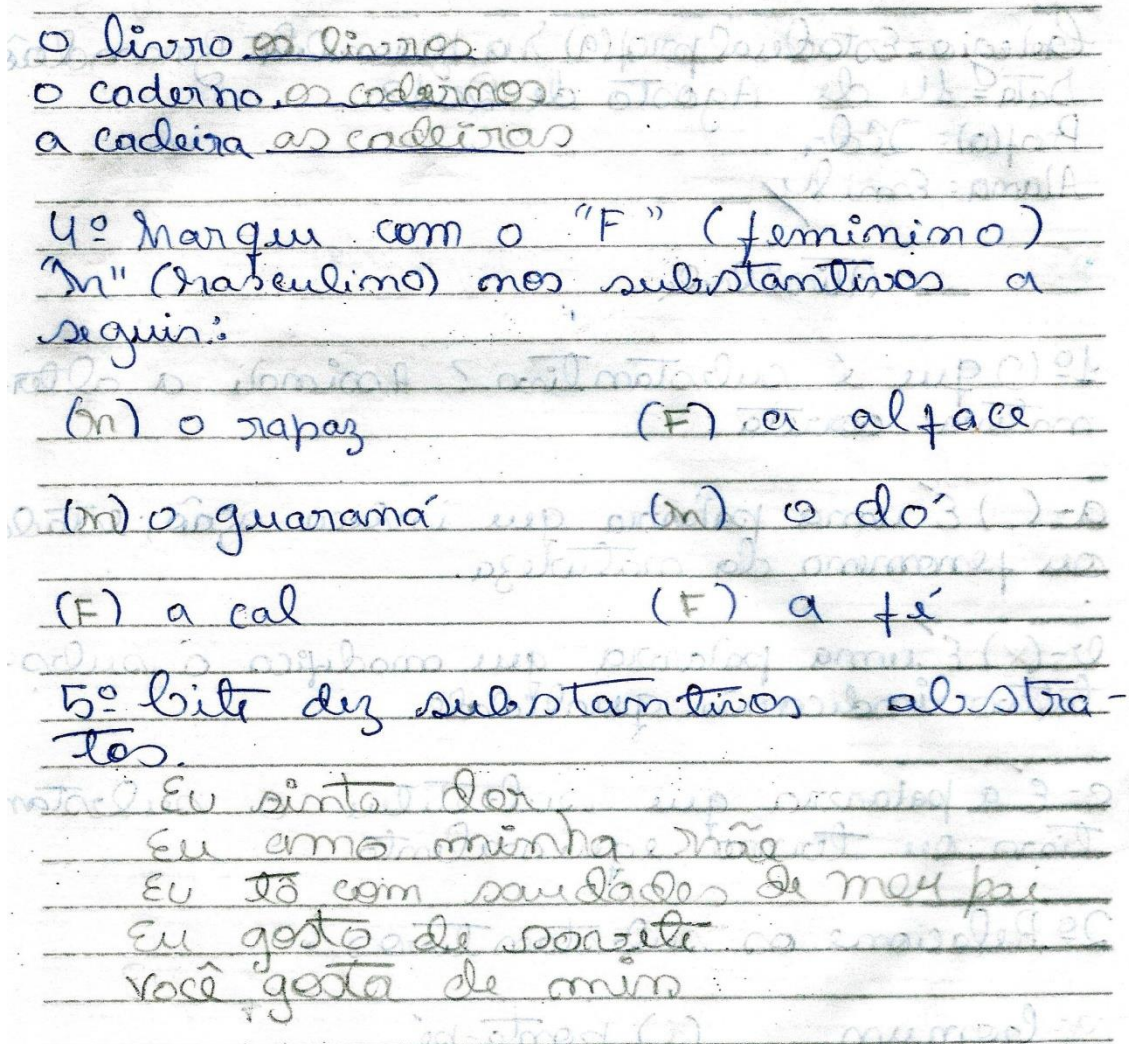 O livro os livros
O caderno, os cadernos
a cadeira as cadeiras
4º Marque com o "F" (feminino)
"M" (Masculino) nos substantivos a
seguir:
(M) o rapaz (F) a alface
(M) o guaraná (M) o dó
(F) a cal (F) a fé
5º Cite dez substantivos abstra-
tos.
Eu sinto dor
Eu amo minha mãe
Eu tô com saudades de meu pai
Eu gosto de sorvete
Você gosta de mim